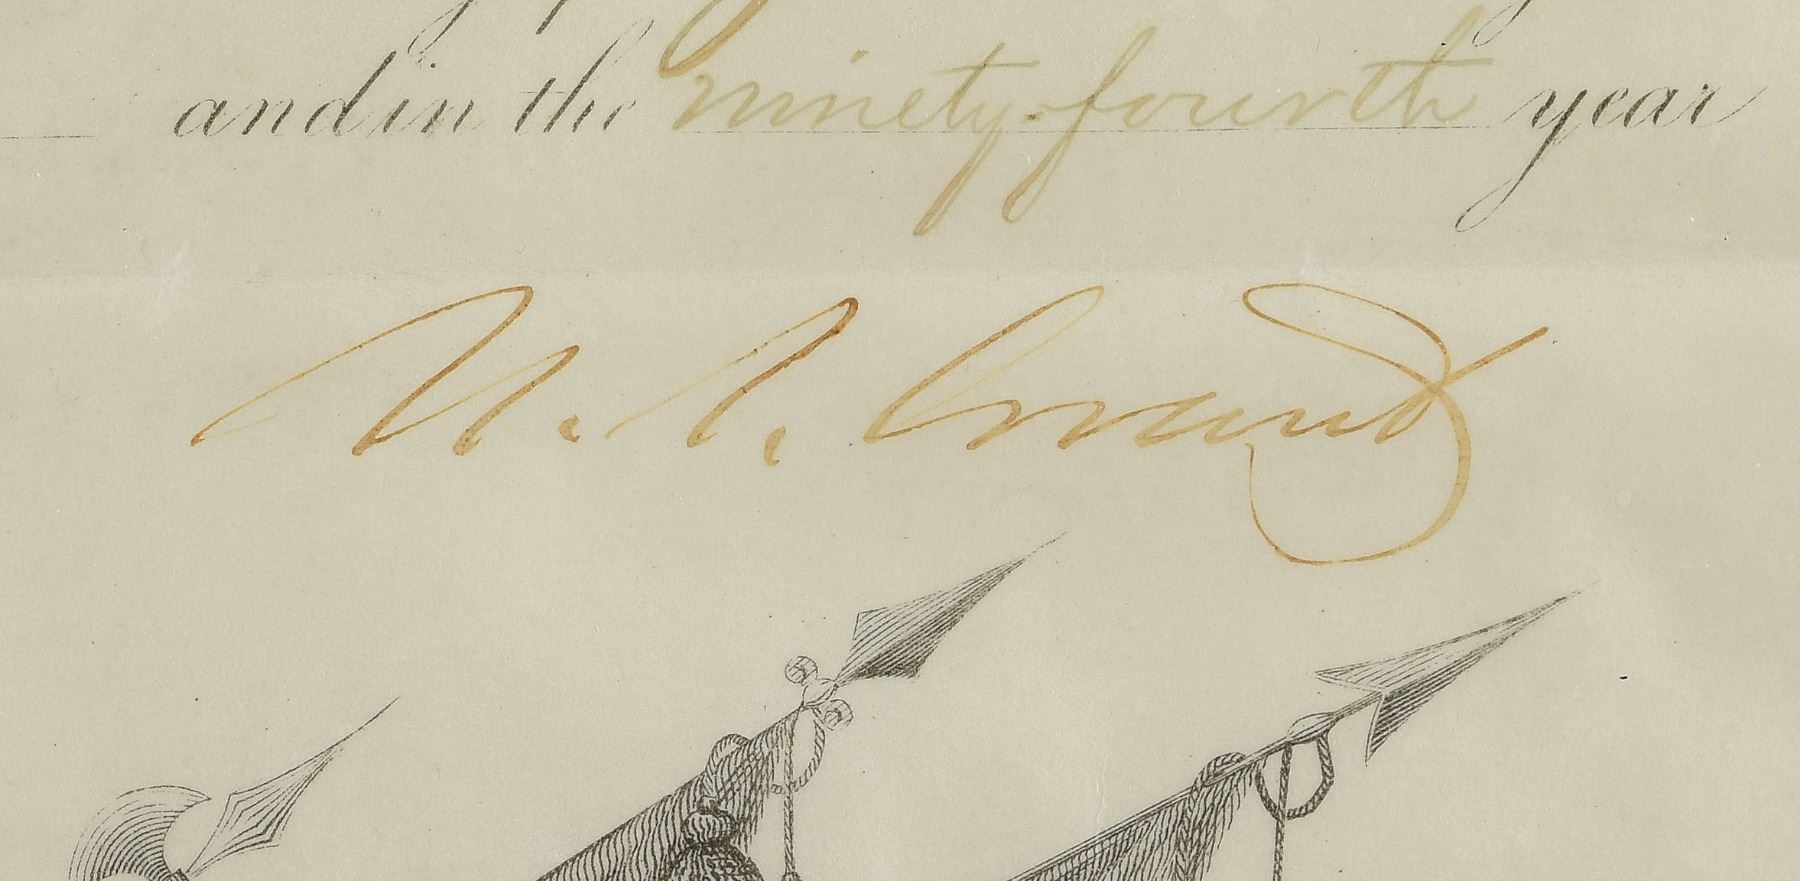 and in the ninety-fourth year
U. S. Grant